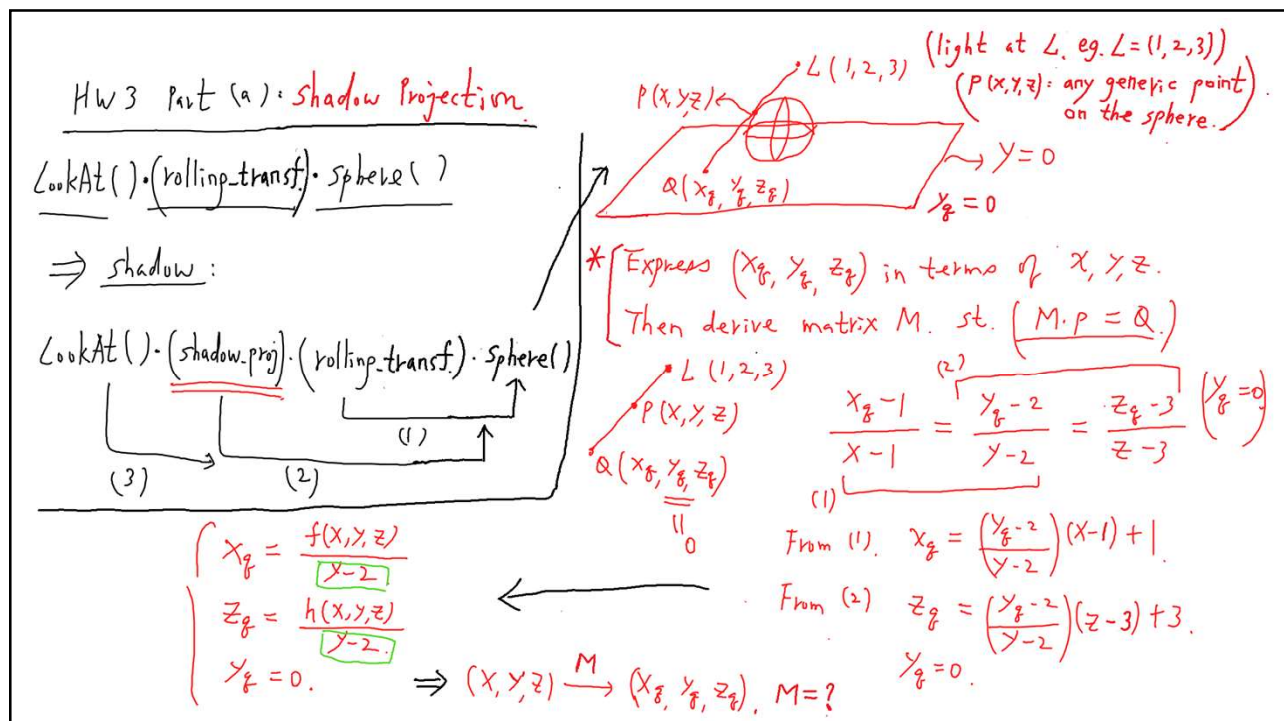 HW3 Part (a): Shadow Projection
LookAt()·(rolling_transf.)·sphere()
⇒ shadow:
LookAt()·(shadow_proj)·(rolling_transf.)·sphere()
(1)
(2)
(3)
(light at L. eg. L=(1,2,3))
L(1,2,3)
P(X,Y,Z)
(P(X,Y,Z): any generic point
on the sphere.)
→ Y=0
Q(Xq, Yq, Zq)
Yq=0
* [Express (Xq, Yq, Zq) in terms of X, Y, Z.
Then derive matrix M. st. (M·P = Q.)
L(1,2,3)
P(X,Y,Z)
Q(Xq, Yq, Zq)
=0
(2)
(Xq-1)/(X-1) = (Yq-2)/(Y-2) = (Zq-3)/(Z-3) (Yq=0)
(1)
From (1). Xq = ((Yq-2)/(Y-2))(X-1)+1.
From (2) Zq = ((Yq-2)/(Y-2))(Z-3)+3.
Yq=0.
Xq = f(X,Y,Z)/(Y-2)
Zq = h(X,Y,Z)/(Y-2)
Yq = 0.
⇒ (X,Y,Z) →M (Xq, Yq, Zq). M=?